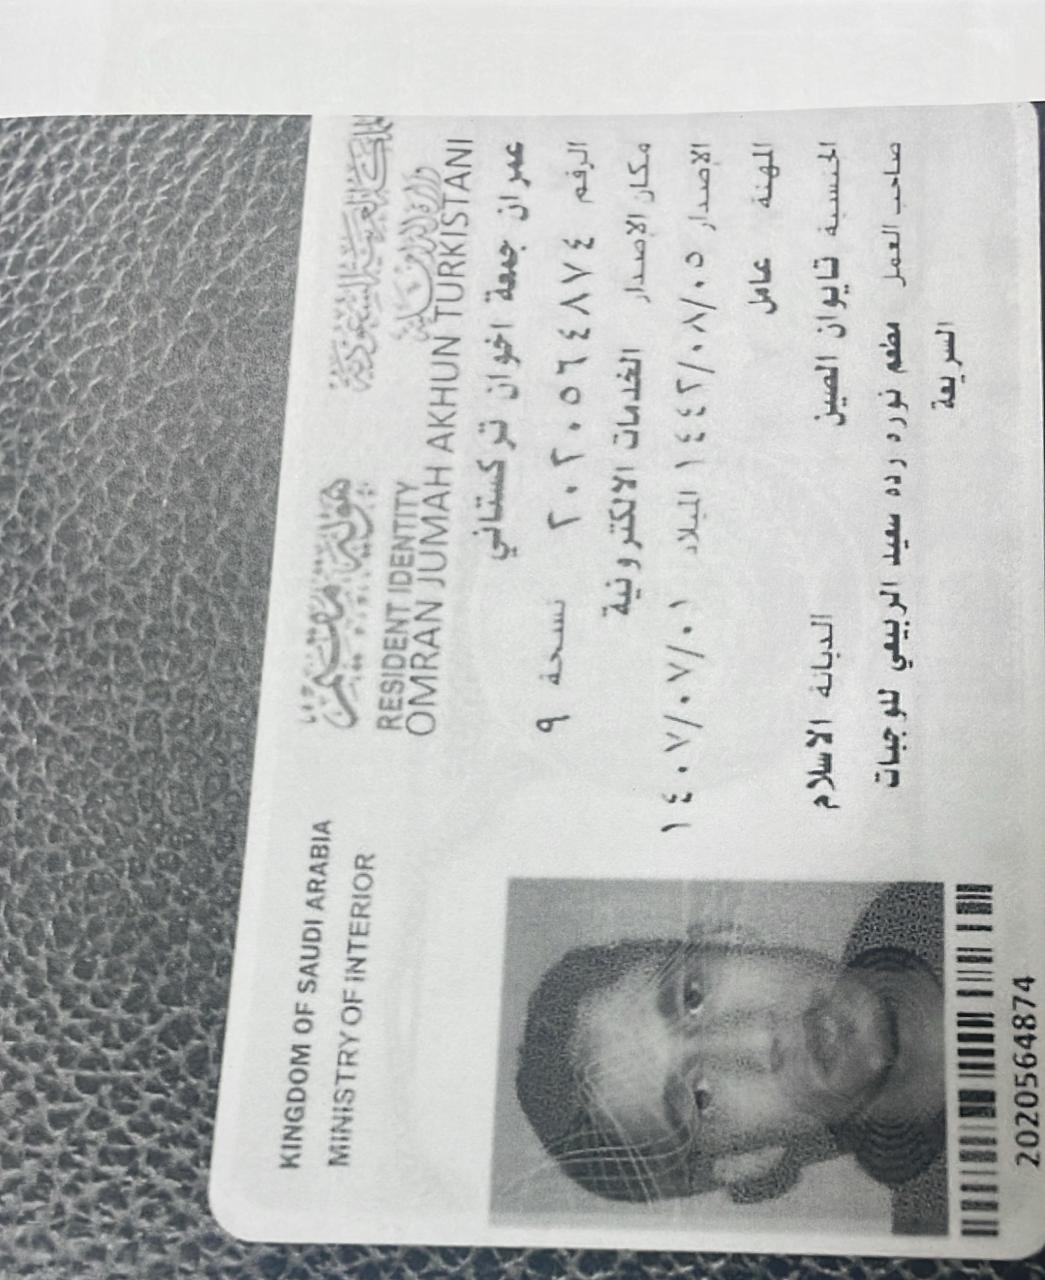 المملكة العربية السعودية
وزارة الداخلية
KINGDOM OF SAUDI ARABIA
MINISTRY OF INTERIOR
هوية مقيم
RESIDENT IDENTITY
OMRAN JUMAH AKHUN TURKISTANI
عمران جمعة اخوان تركستاني
الرقم ٢٠٢٠٥٦٤٨٧٤ نسخة ٩
مكان الإصدار الخدمات الالكترونية
الإصدار ١٤٤٢/٠٨/٠٥ الميلاد ١٤٠٧/٠٧/٠١
المهنة عامل
الجنسية تايوان الصين الديانة الاسلام
صاحب العمل مطعم نوره رده سعيد الربيعي للوجبات
السريعة
2020564874